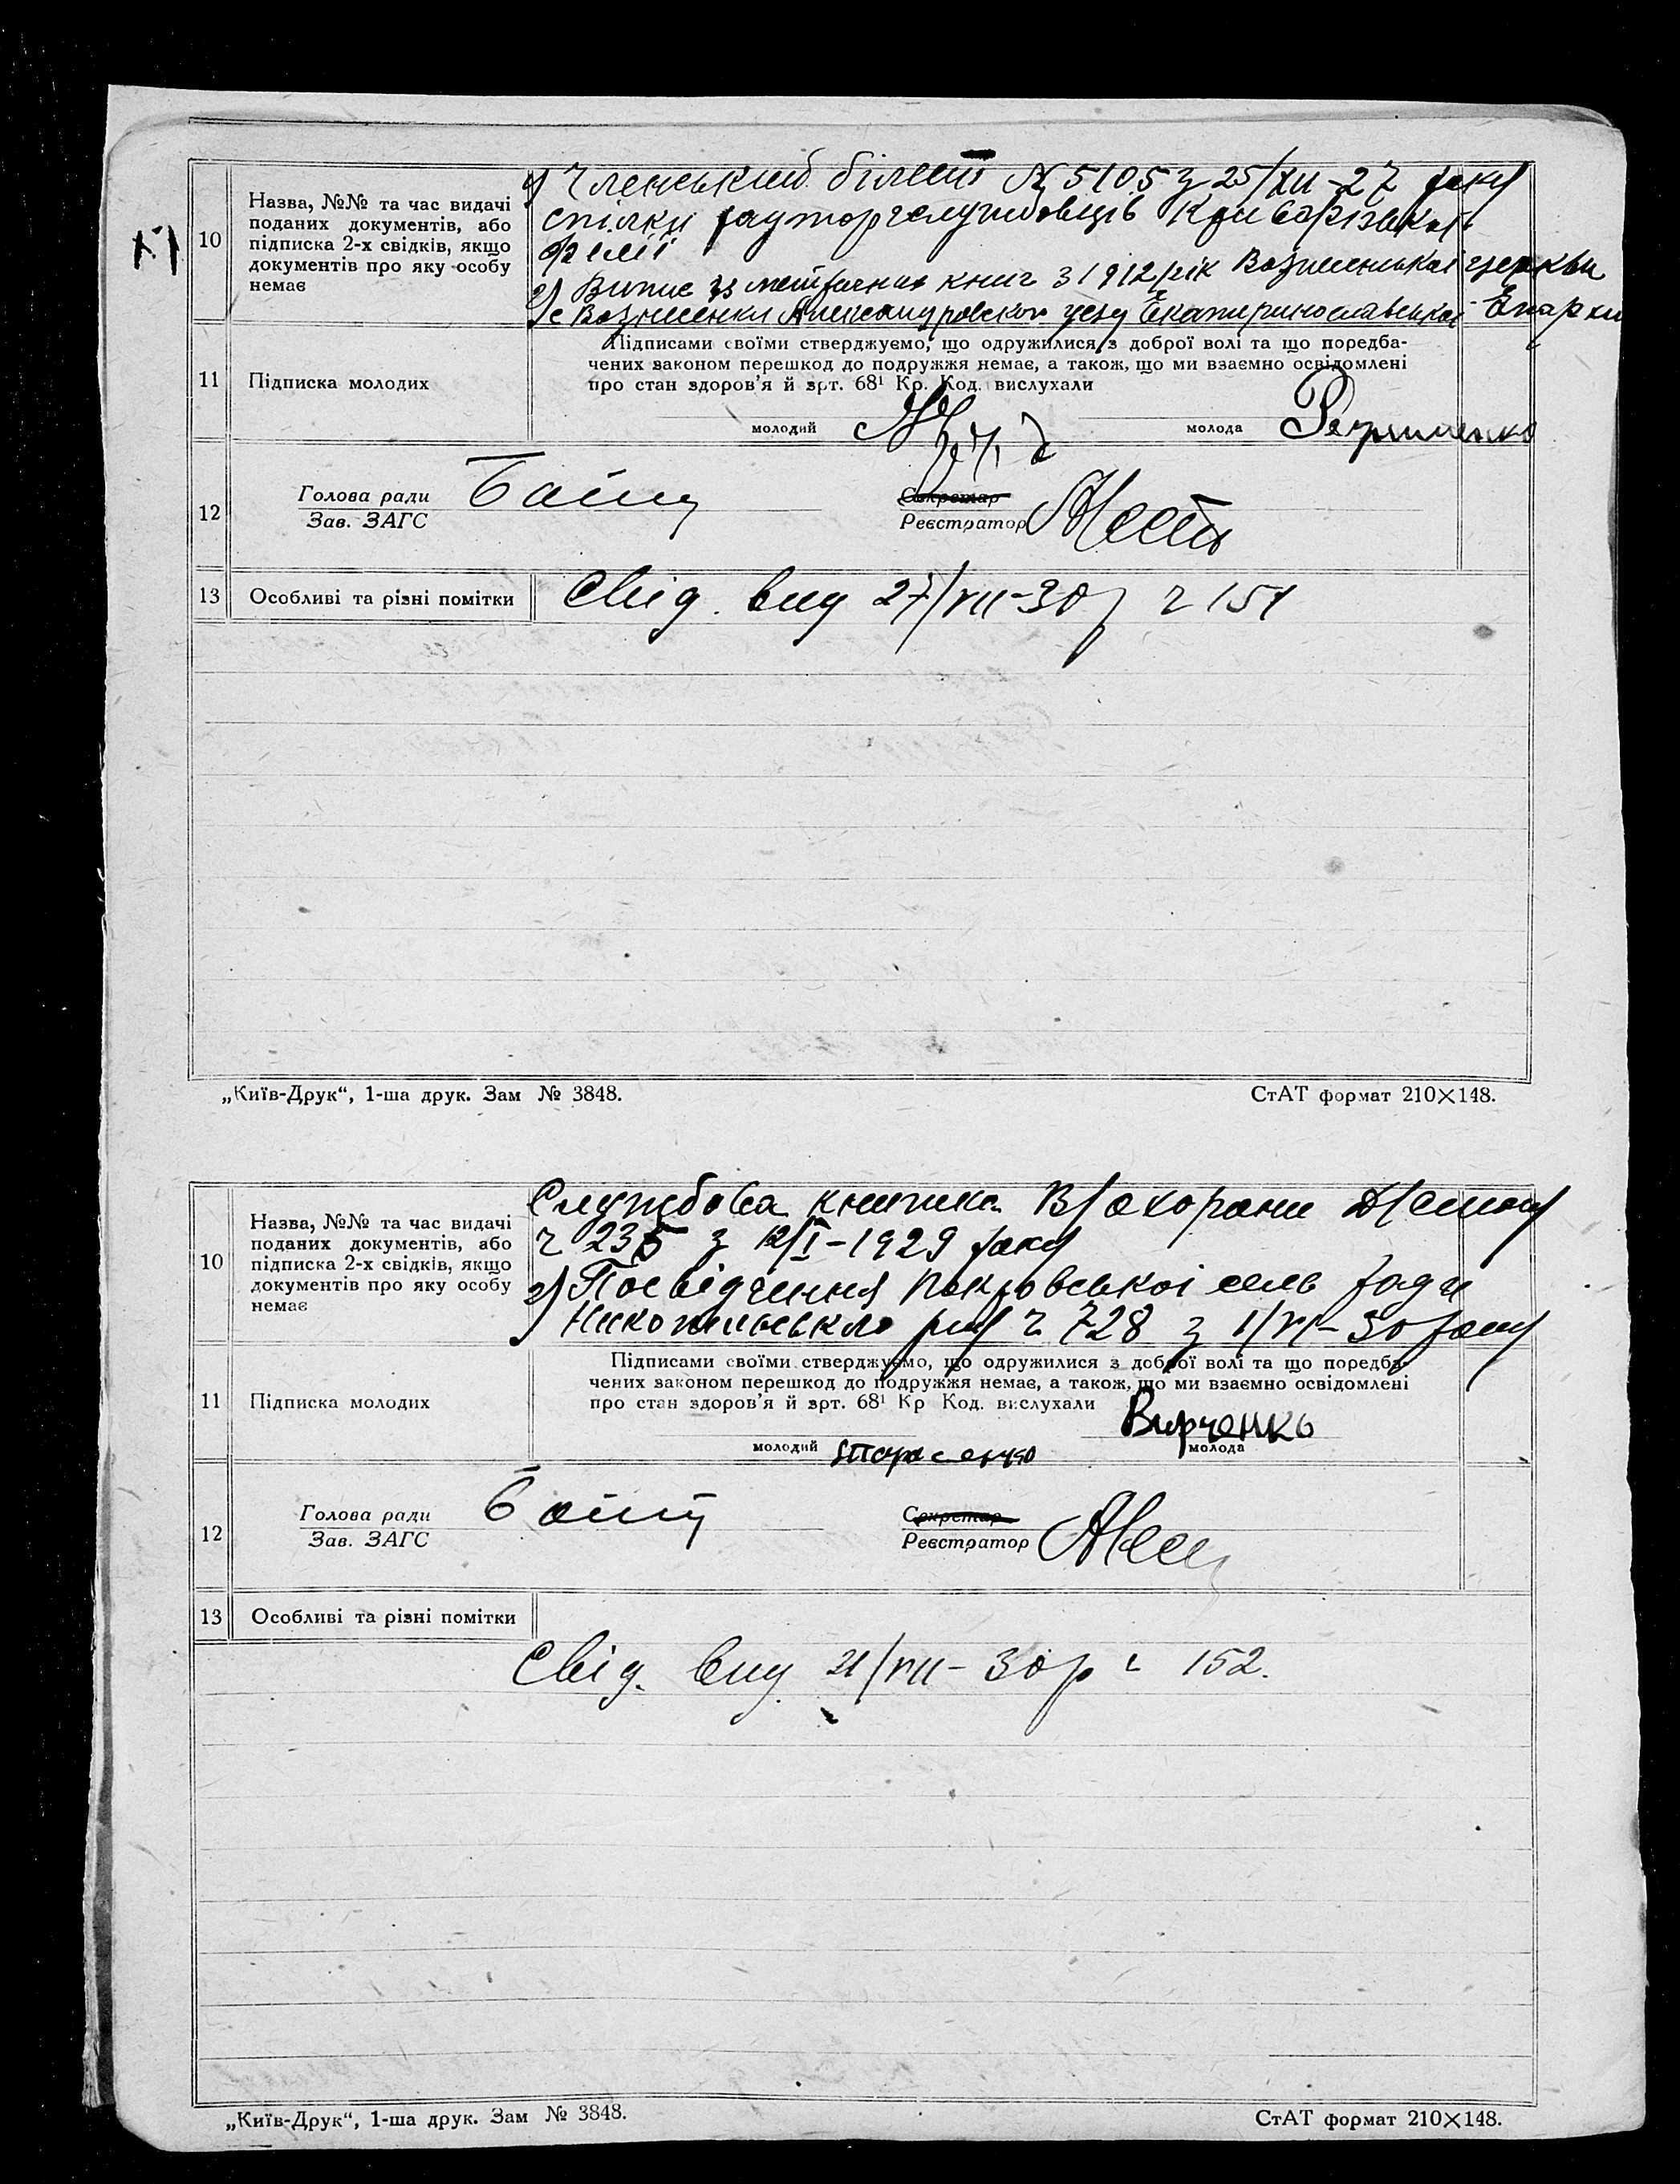 10
Назва, №№ та час видачі
поданих документів, або
підписка 2-х свідків, якщо
документів про яку особу
немає
1) Членський білет № 5105 з 25/XII-27 року
спілки
філії
2) Випис із метричних книг з 1912 рік Вознесенської церкви
с Вознесенки Александровского уезду Екатеринославської Епархии
11
Підписка молодих
Підписами своїми стверджуємо, що одружилися з доброї волі та що поредба-
чених законом перешкод до подружжя немає, а також, що ми взаємно освідомлені
про стан здоров'я й зрт. 68¹ Кр. Код. вислухали
молодий
молода
12
Голова ради
Зав. ЗАГС
Секретар
Реєстратор
13
Особливі та різні помітки
Свід. вид 27/VII-30р ч 151
„Київ-Друк“, 1-ша друк. Зам № 3848.
СтАТ формат 210×148.
10
Назва, №№ та час видачі
поданих документів, або
підписка 2-х свідків, якщо
документів про яку особу
немає
Службова книжка В/охорани
ч 235 з 12/I-1929 року
2) Посвідчення Покровської сель ради
Никопильського р-ну ч 728 з 1/VI-30 року
11
Підписка молодих
Підписами своїми стверджуємо, що одружилися з доброї волі та що поредба-
чених законом перешкод до подружжя немає, а також, що ми взаємно освідомлені
про стан здоров'я й зрт. 68¹ Кр Код. вислухали
Вирченко
молодий
молода
12
Голова ради
Зав. ЗАГС
Секретар
Реєстратор
13
Особливі та різні помітки
Свід. вид. 21/VII-30р ч 152.
„Київ-Друк“, 1-ша друк. Зам № 3848.
СтАТ формат 210×148.